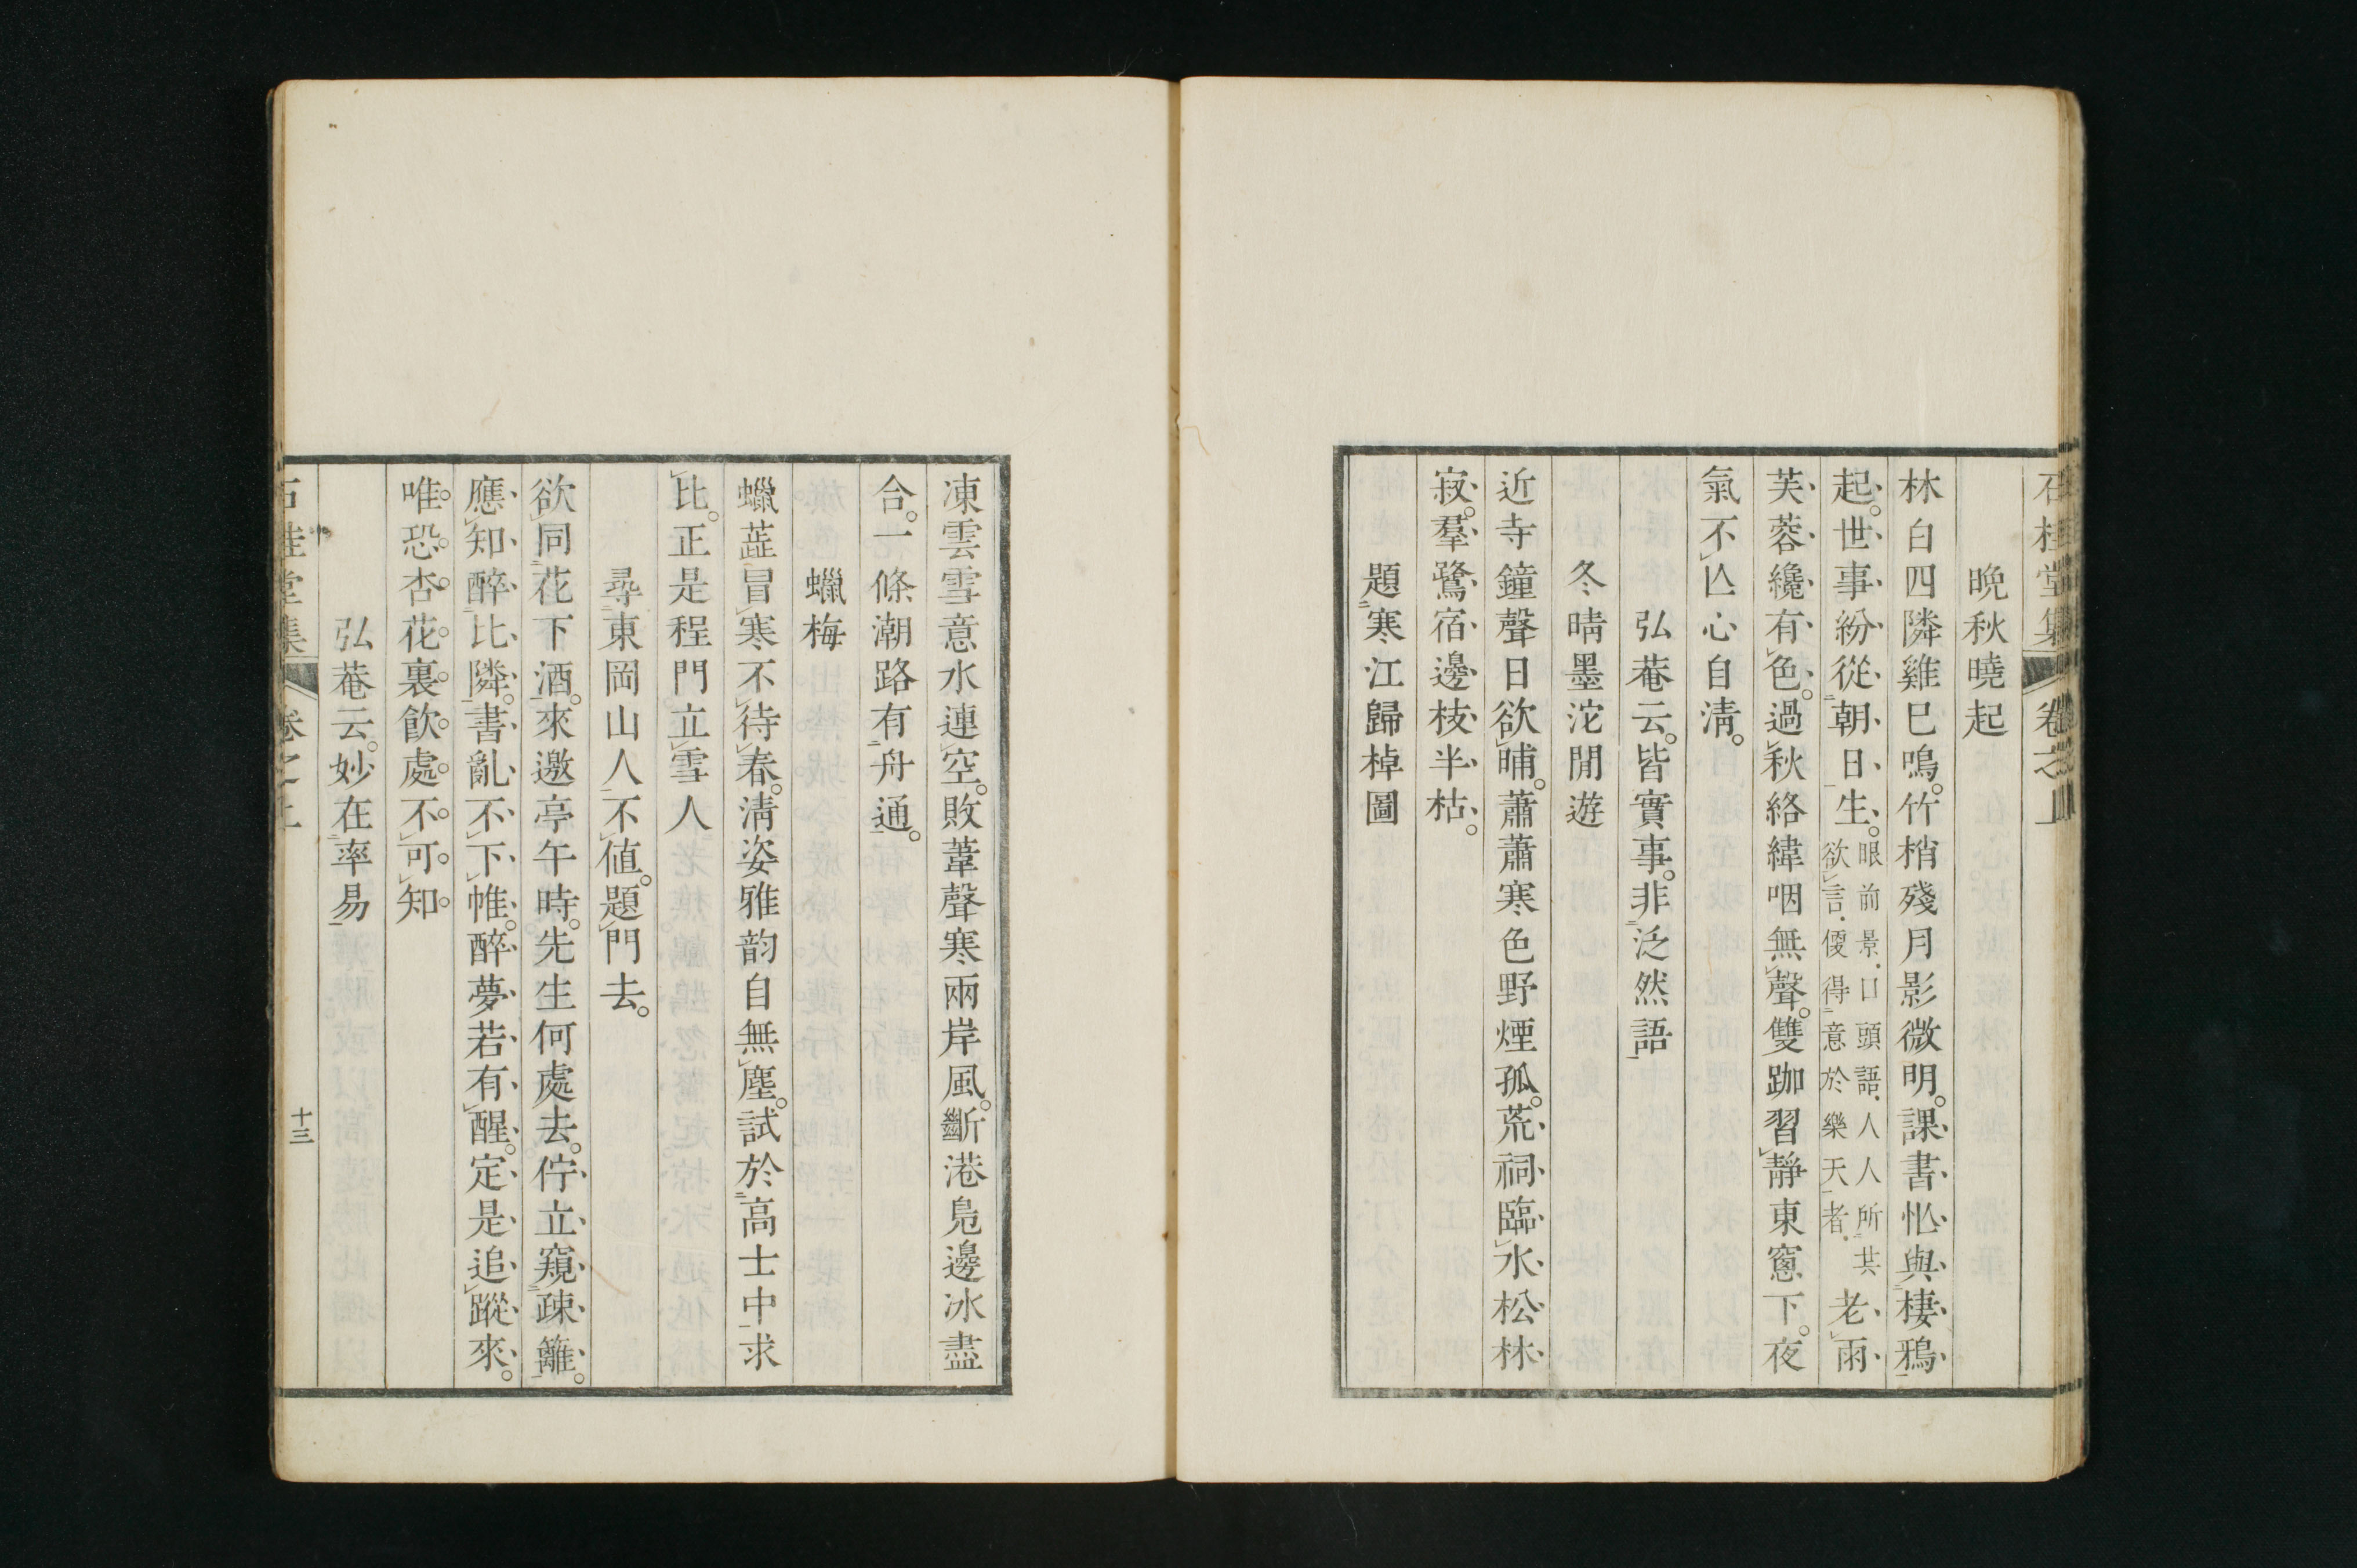 石桂堂集 卷之上
晩秋曉起
林白四隣雞巳鳴。竹梢殘月影微明。課書怱與棲鴉
起。世事紛從朝日生。眼前景.口頭語.人人所共
欲言.便得意於樂天者.老雨
芙蓉纔有色。過秋絡緯咽無聲。雙跏習靜東窻下。夜
氣不亾心自淸。
弘菴云。皆實事。非泛然語
冬晴墨沱閒遊
近寺鐘聲日欲晡。蕭蕭寒色野煙孤。荒祠臨水松林
寂。羣鷺宿邊枝半枯。
題寒江歸棹圖
凍雲雪意水連空。敗葦聲寒兩岸風。斷港鳧邊冰盡
合。一條潮路有舟通。
蠟梅
蠟蘂冒寒不待春。淸姿雅韵自無塵。試於高士中求
比。正是程門立雪人
尋東岡山人不値。題門去。
欲同花下酒。來邀亭午時。先生何處去。佇立窺疎籬。
應知醉比隣。書亂不下帷。醉夢若有醒。定是追蹤來。
唯恐杏花裏飮處不可知
弘菴云。妙在率易
石桂堂集 卷之上 十三